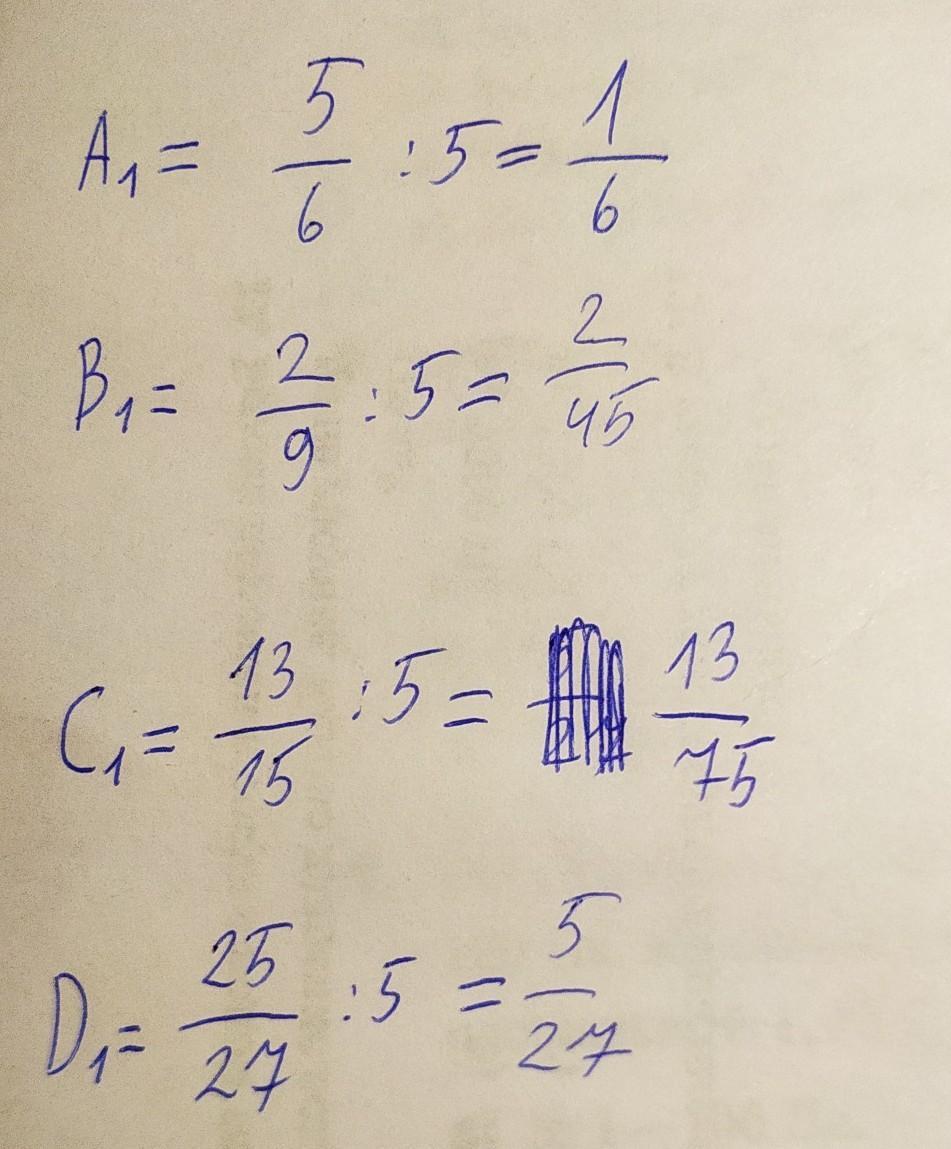 A₁ = 5/6 : 5 = 1/6
B₁ = 2/9 : 5 = 2/45
C₁ = 13/15 : 5 = 13/75
D₁ = 25/27 : 5 = 5/27